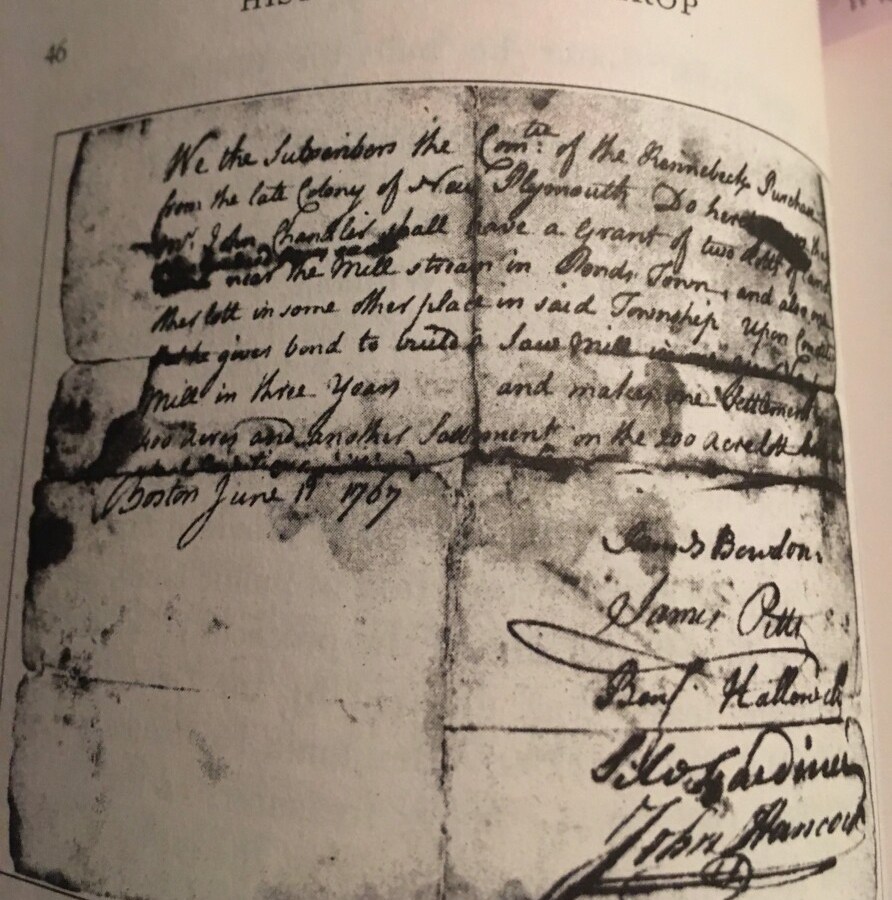 46
We the Subscribers the Com:tee of the Kennebeck Purchase
from the late Colony of New Plymouth Do
Mr. John Chandler shall have a Grant of two lotts of
near the Mill stream in Ponds Town, and also
ther lott in some other place in said Township Upon
he gives bond to build a Saw Mill
Mill in three Years and makes one Settlement
400 acres and another Settlement on the 200 acre lott
Boston June 1767
James Bowdoin
James Pitts
Benj Hallowell
Silv Gardiner
John Hancock